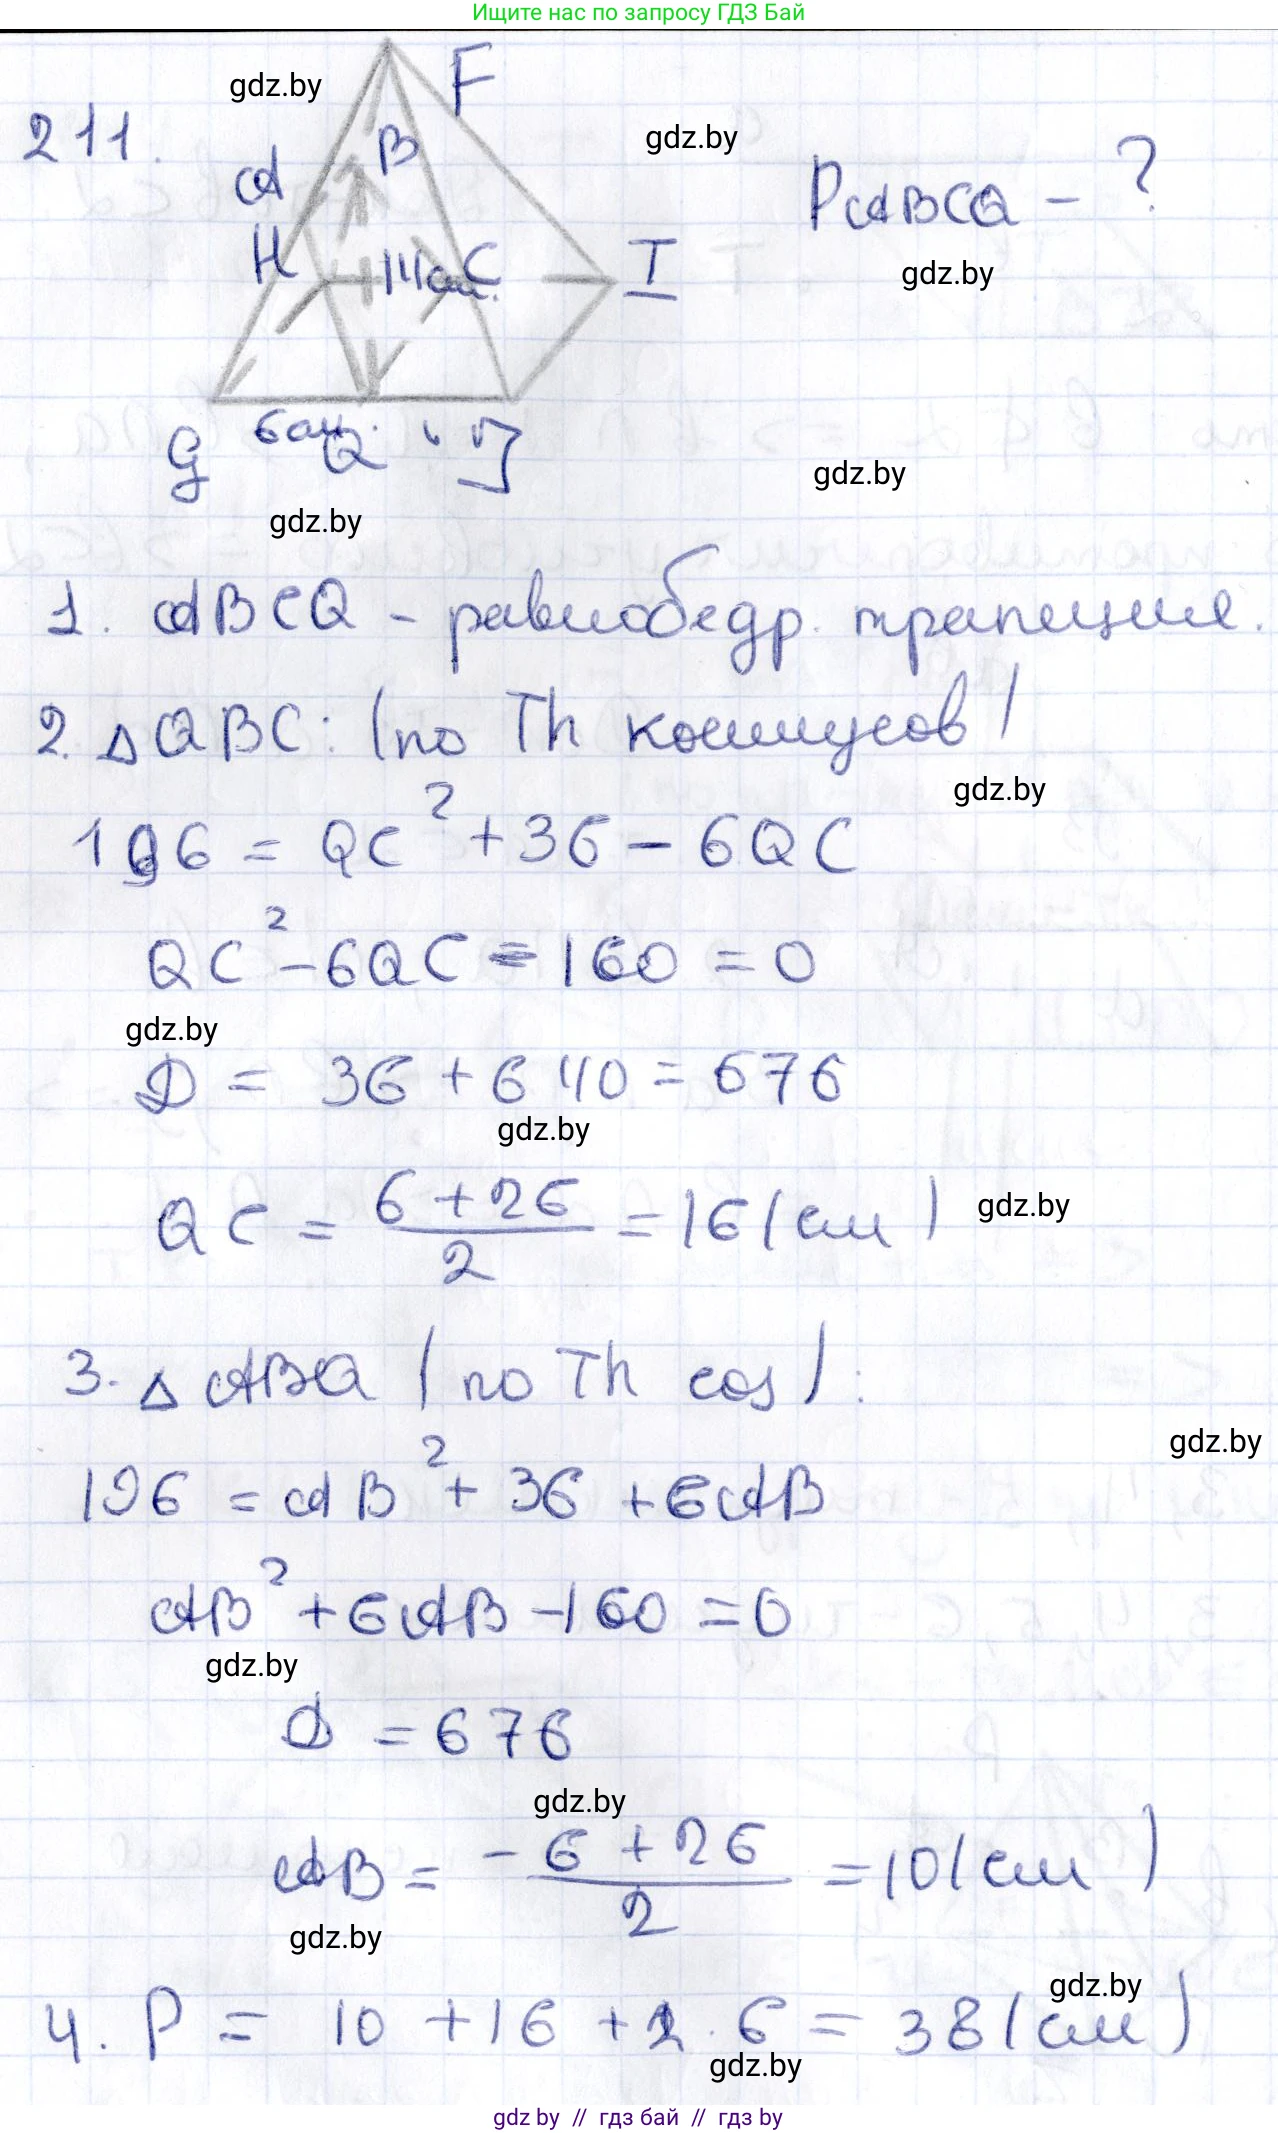 Ищите нас по запросу ГДЗ Бай
gdz.by
211.
F
B
A
gdz.by
P ABCQ - ?
H
14 см.
C
I
gdz.by
6 см.
G
Q
J
gdz.by
gdz.by
1. ABCQ - равнобедр. трапеция.
2. △QBC: (по Th косинусов)
gdz.by
196 = QC² + 36 - 6QC
QC² - 6QC - 160 = 0
gdz.by
D = 36 + 640 = 676
gdz.by
QC = (6 + 26)/2 = 16 (см)
gdz.by
3. △ABQ (по Th cos):
gdz.by
196 = AB² + 36 + 6AB
AB² + 6AB - 160 = 0
gdz.by
D = 676
gdz.by
AB = (-6 + 26)/2 = 10 (см)
gdz.by
gdz.by
4. P = 10 + 16 + 2 · 6 = 38 (см)
gdz.by
gdz by // гдз бай // гдз by